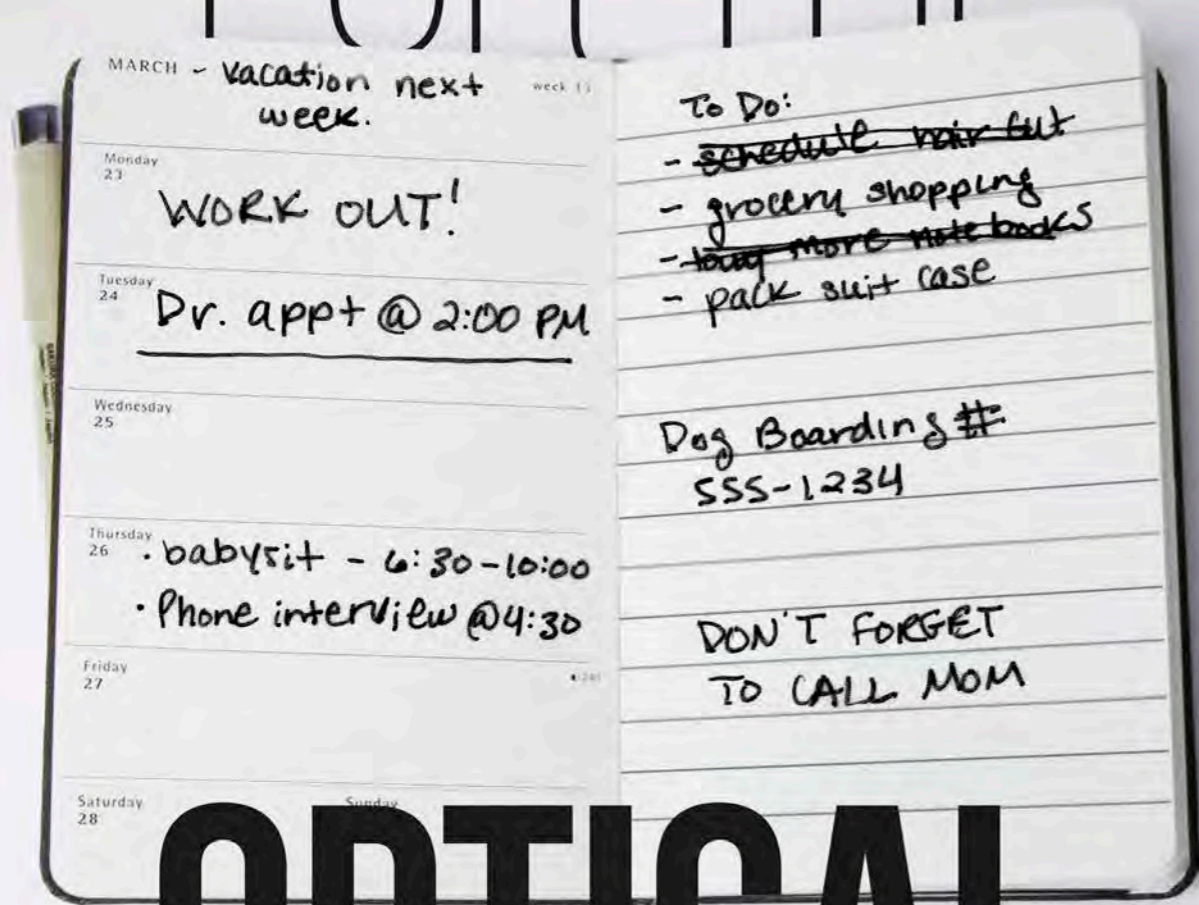 MARCH - Vacation next
week 13
week.
Monday
23
WORK OUT!
Tuesday
24
Dr. appt @ 2:00 PM
Wednesday
25
Thursday
26
· babysit - 6:30-10:00
· Phone interview @4:30
Friday
27
Saturday
28
Sunday
To Do:
- schedule hair cut
- grocery shopping
- buy more notebooks
- pack suit case
Dog Boarding #:
555-1234
DON'T FORGET
TO CALL MOM
OPTICAL